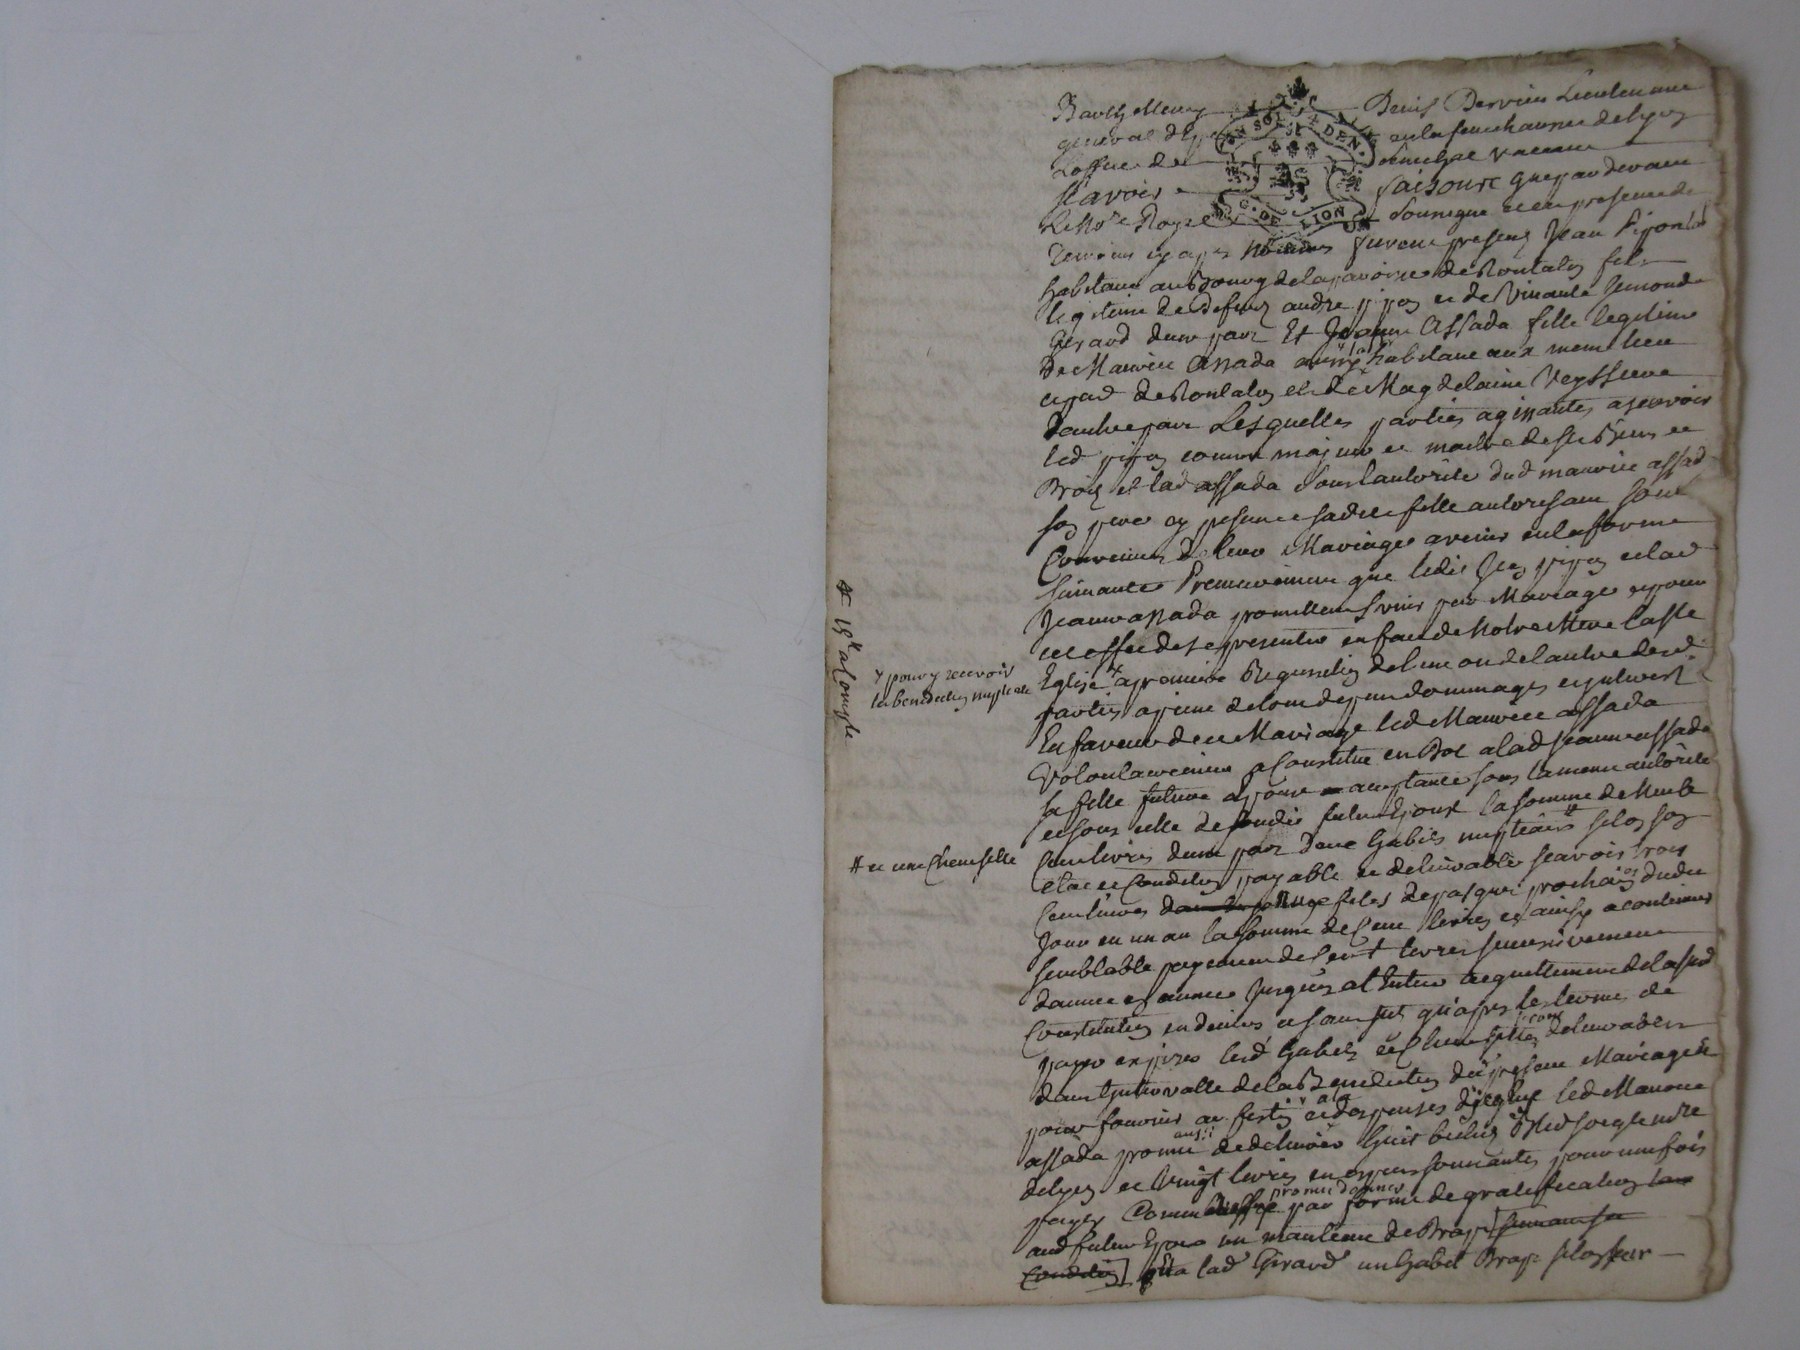 Barthellemy Denis Dervieu Lieutenant
general d'Epée en la senechaussee de Lyon
L'office de senechal vacant
scavoir faisons que pardevant
le No.re Royal soussigne et en presence de
temoins cy apres nommes furent presens Jean Pipon
habitant au Bourg de la paroisse de Rontalon fils
legitime de deffunt andre pipon et de vivante
Girard d'une part Et Jeanne Assada fille legitime
de Maurice Assada aussy habitant aux meme lieu
et par. de Rontalon et de Magdelaine Veyssiere
d'autre part Lesquelles parties agissantes a scavoir
led pipon comme majeur et maitre de ses Biens et
Droits et lad assada sous l'autorite dud maurice assada
son pere cy present sadite fille autorisant sont
Convenus de leur Mariage avenir en la forme
suivante Premierement que ledit Jean pipon et lad
Jeanne assada promettent s'unir par Mariage et pour
cet effet de se presenter en face de Notre Mere s.te
Eglise a premiere Requisition de l'une ou de l'autre desd.
parties a peine de tous depens dommages et interest
En faveur de ce Mariage led Maurice assada
Volontairement a Constitue en Dot a lad Jeanne assada
sa fille future epouse acceptante sous la meme autorite
et sous celle de sondit futur Epoux la somme de Neuf
Cent livres d'une part deux habits nuptiaux selon son
etat et Condition payable et delivrable scavoir trois
Cent livres festes de pasques prochaines dudit
Jour en un an la somme de Cent livres et ainsy a continuer
semblable payement de Cent livres successivement
d'annee en annee jusques a l'Entier acquittement de la sud
Constitution en deniers et sans interest qu'apres les termes de
payer expires lesd habits et Chenfelle seront delivrables
dans l'intervalle de la Benediction du present Mariage &
pour fournir au festin et depenses d'iceluy led Maurice
assada promet aussi de delivrer huit bichets Bled seigle mesure
de Lyon et Vingt livres en especes sonnantes pour une fois
payer Comme promet donner par forme de gratification
aud futur Epoux un manteau de Drap
Condition] Et a lad Girard un habit Drap selon son
+ pour y recevoir
la benediction nuptiale
# et une Chenfelle